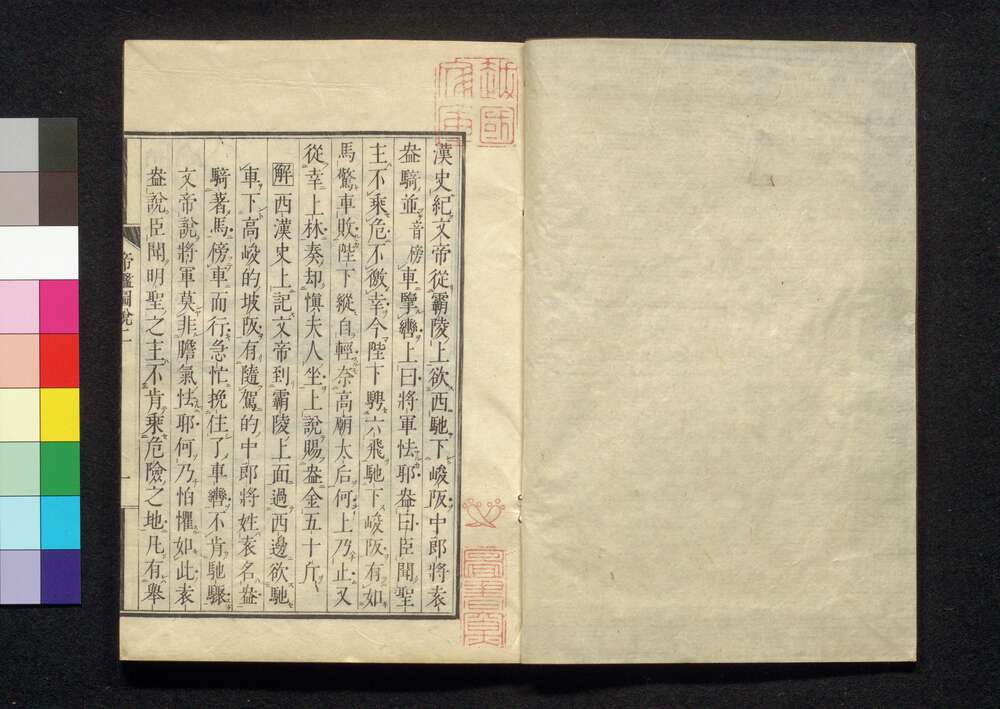 漢史紀文帝從霸陵上欲西馳下峻阪中郎將袁
盎騎並音傍車擥轡上曰將軍怯耶盎曰臣聞聖
主不乘危不徼幸今陛下騁六飛馳下峻阪有如
馬驚車敗陛下縱自輕奈高廟太后何上乃止又
從幸上林奏却愼夫人坐上說賜盎金五十斤
解西漢史上記文帝到霸陵上面過西邊欲馳
車下高峻的坡阪有隨駕的中郎將姓袁名盎
騎著馬傍車而行急忙挽住了車轡不肯馳驟
文帝說將軍莫非膽氣怯耶何乃怕懼如此袁
盎說臣聞明聖之主不肯乘危險之地凡有舉
帝鑑圖說二
一